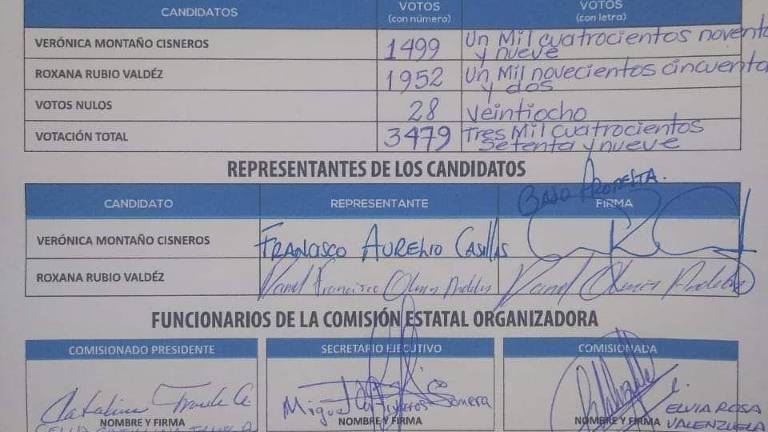 CANDIDATOS VOTOS (con número) VOTOS (con letra)
VERÓNICA MONTAÑO CISNEROS 1499 Un Mil cuatrocientos noventa y nueve
ROXANA RUBIO VALDÉZ 1952 Un Mil novecientos cincuenta y dos
VOTOS NULOS 28 veintiocho
VOTACIÓN TOTAL 3479 Tres Mil cuatrocientos Setenta y nueve
REPRESENTANTES DE LOS CANDIDATOS
BAJO PROTESTA.
CANDIDATO REPRESENTANTE FIRMA
VERÓNICA MONTAÑO CISNEROS FRANCISCO AURELIO CASILLAS
ROXANA RUBIO VALDÉZ
FUNCIONARIOS DE LA COMISIÓN ESTATAL ORGANIZADORA
COMISIONADO PRESIDENTE SECRETARIO EJECUTIVO COMISIONADA
Catalina
NOMBRE Y FIRMA NOMBRE Y FIRMA NOMBRE Y FIRMA
ELVIA ROSA
VALENZUELA